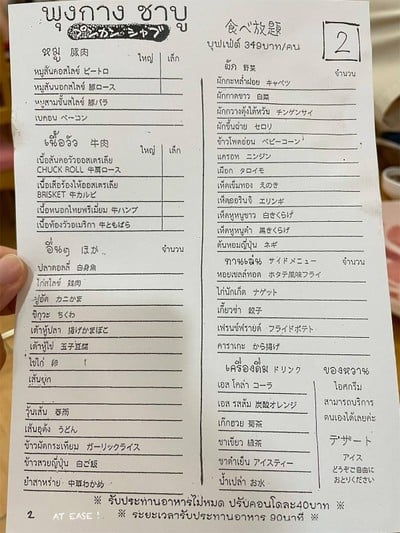 พุงกาง ชาบู
プンカン シャブ
หมู 豚肉
ใหญ่ เล็ก
หมูสันคอสไลซ์ ピートロ
หมูสันนอกสไลซ์ 豚ロース
หมูสามชั้นสไลซ์ 豚バラ
เบคอน ベーコン
เนื้อวัว 牛肉
ใหญ่ เล็ก
เนื้อสันคอวัวออสเตรเลีย
CHUCK ROLL 牛肩ロース
เนื้อเสือร้องไห้ออสเตรเลีย
BRISKET 牛カルビ
เนื้อหนอกไทยพรีเมี่ยม 牛ハンプ
เนื้อท้องวัวอเมริกา 牛ともばら
อื่นๆ ほか
จำนวน
ปลาดอลลี่ 白身魚
ไก่สไลซ์ 鶏肉
ปูอัด カニかま
ชิกูวะ ちくわ
เต้าหู้ปลา 揚げかまぼこ
เต้าหู้ไข่ 玉子豆腐
ไข่ไก่ 卵
เส้นบุก
วุ้นเส้น 春雨
เส้นอุด้ง うどん
ข้าวผัดกระเทียม ガーリックライス
ข้าวสวยญี่ปุ่น 白ご飯
ยำสาหร่าย 中華わかめ
食べ放題
บุฟเฟ่ต์ 349บาท/คน
2
ผัก 野菜
จำนวน
ผักกะหล่ำฝอย キャベツ
ผักกาดขาว 白菜
ผักกวางตุ้งไต้หวัน チンゲンサイ
ผักขึ้นฉ่าย セロリ
ข้าวโพดอ่อน ベビーコーン
แครอท ニンジン
เผือก タロイモ
เห็ดเข็มทอง えのき
เห็ดออรินจิ エリンギ
เห็ดหูหนูขาว 白きくらげ
เห็ดหูหนูดำ 黒きくらげ
ต้นหอมญี่ปุ่น ネギ
ทานเล่น サイドメニュー
จำนวน
หอยเชลล์ทอด ホタテ風味フライ
ไก่นักเก็ต ナゲット
เกี๊ยวซ่า 餃子
เฟรนช์ฟรายด์ フライドポテト
คาราเกะ から揚げ
เครื่องดื่ม ドリンク
เอส โคล่า コーラ
เอส รสส้ม 炭酸オレンジ
เก๊กฮวย 菊茶
ชาเขียว 緑茶
ชาดำเย็น アイスティー
น้ำเปล่า お水
ของหวาน
ไอศกรีม
สามารถบริการ
ตนเองได้เลยค่ะ
デザート
アイス
どうぞご自由に
おとりください
※ รับประทานอาหารไม่หมด ปรับคอนโดละ40บาท ※
※ ระยะเวลารับประทานอาหาร 90นาที ※
2 AT EASE!